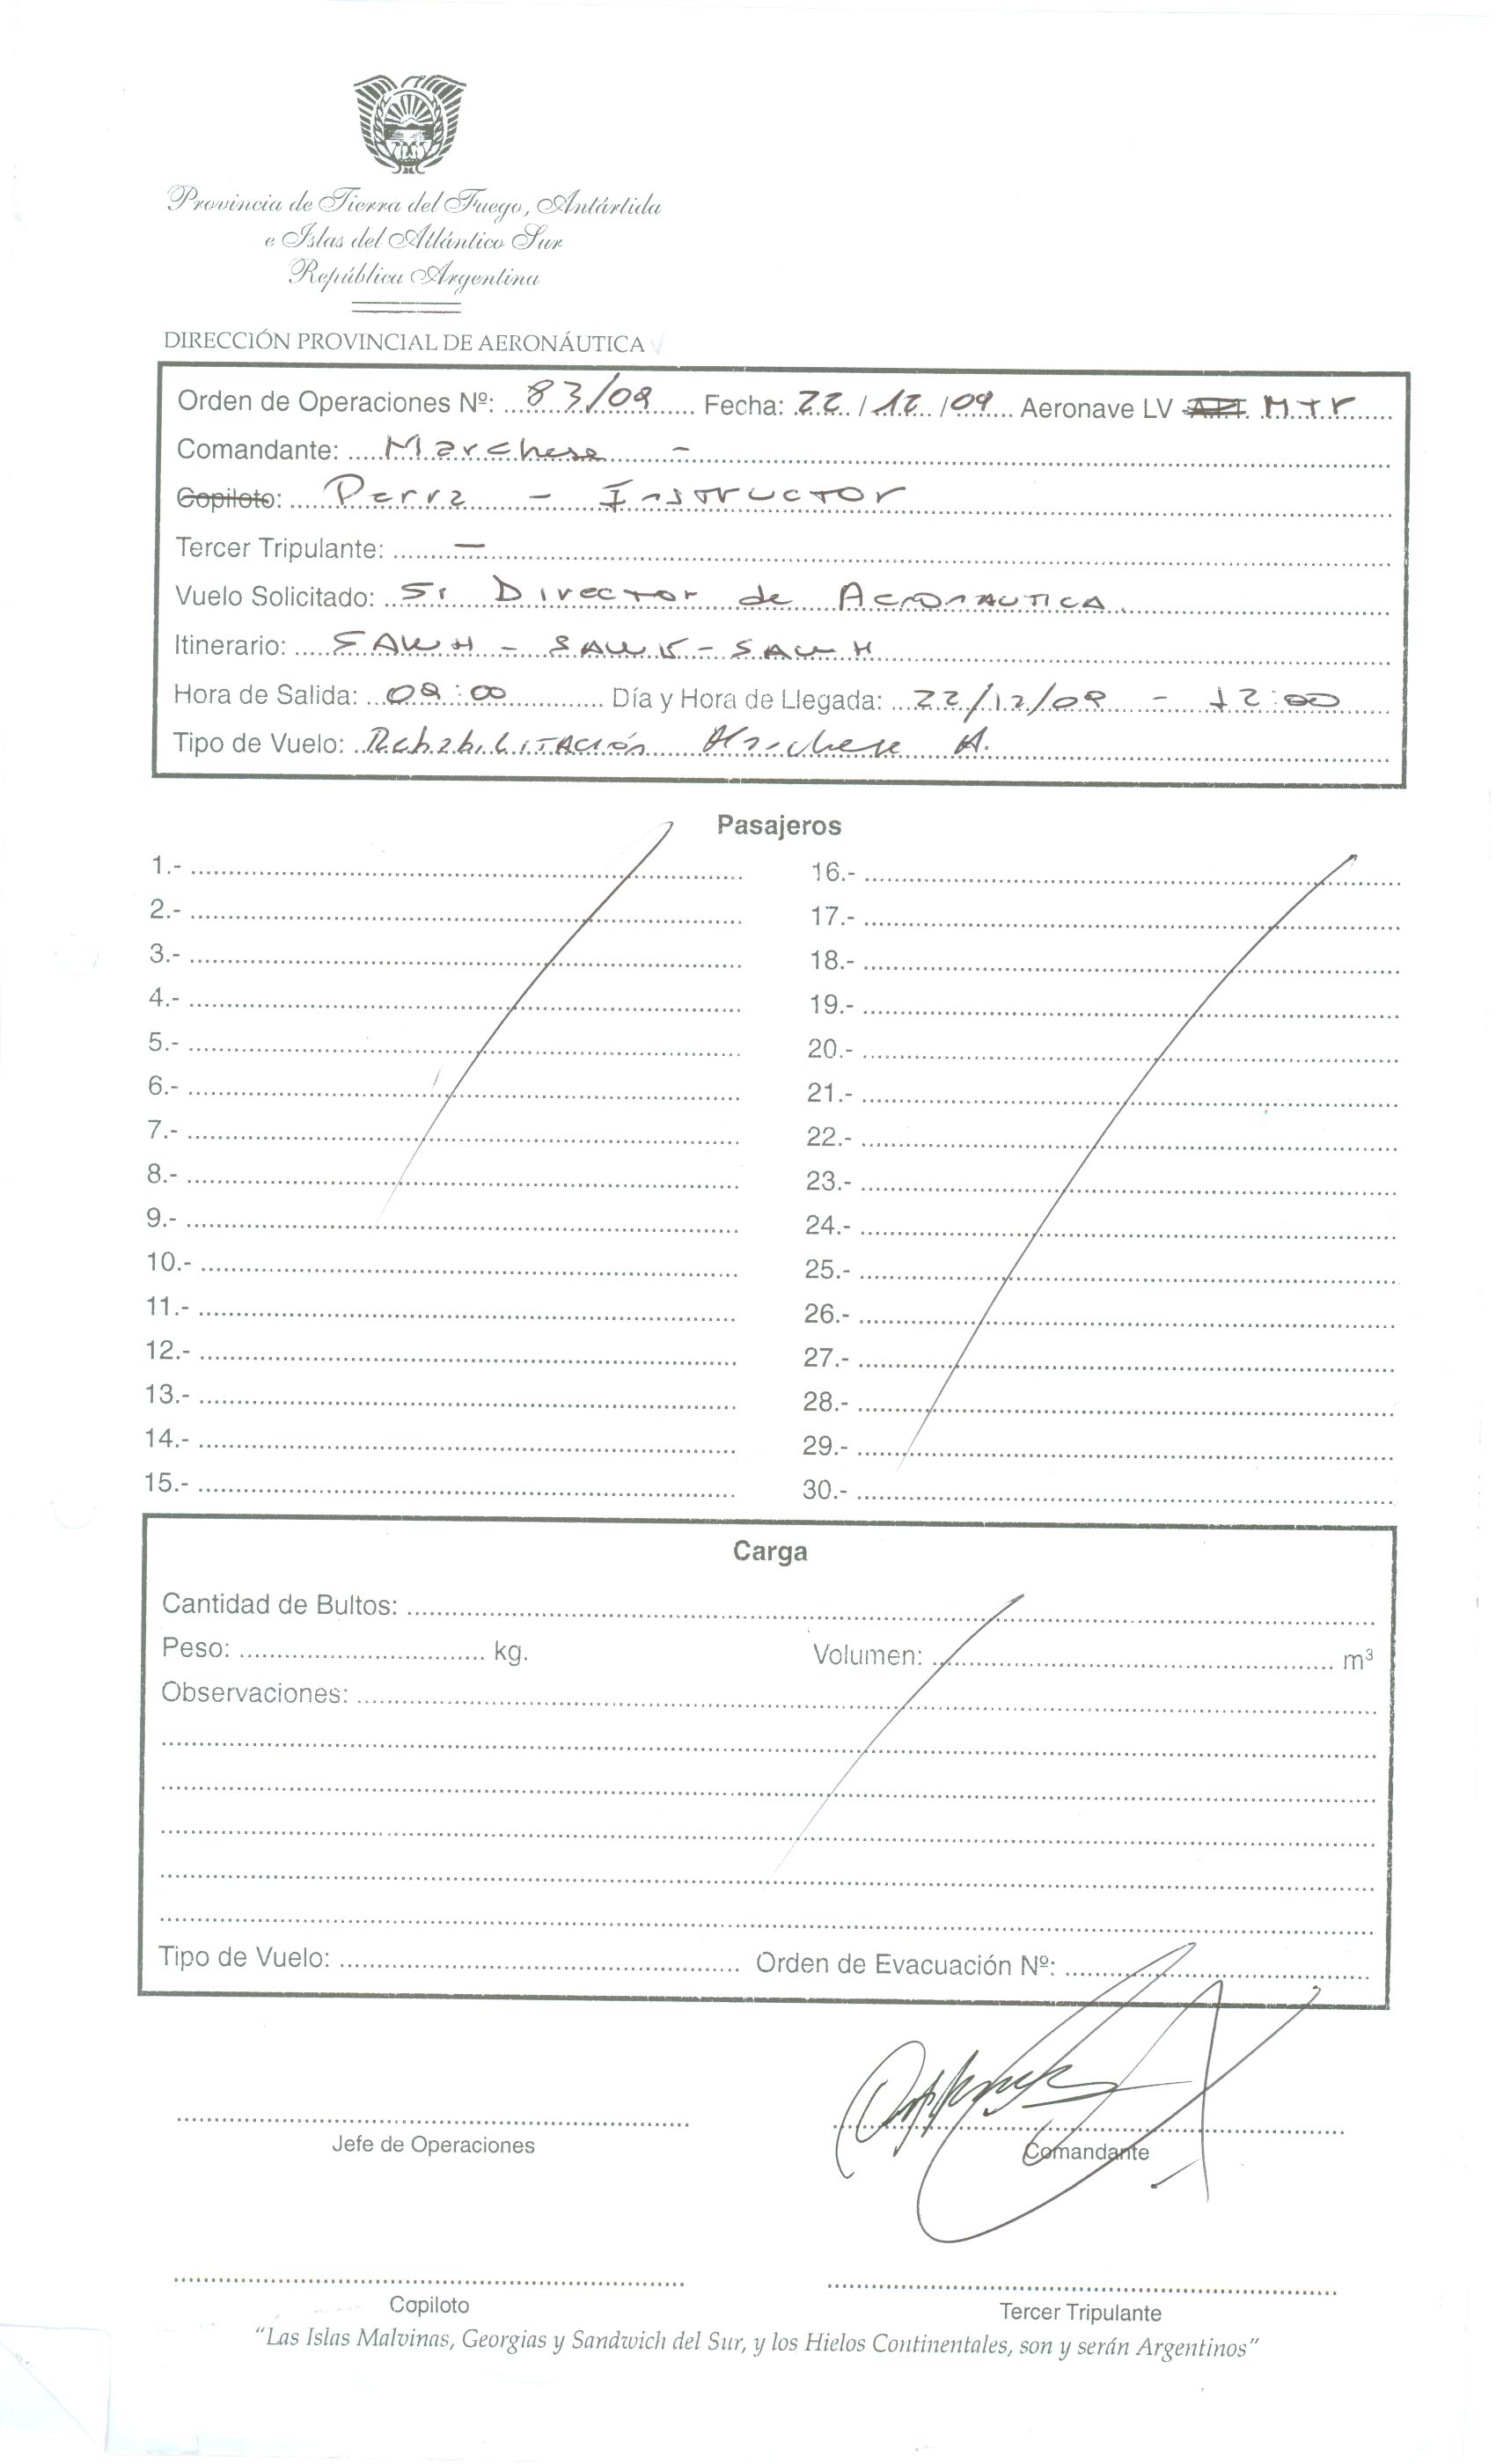 Provincia de Tierra del Fuego, Antártida
e Islas del Atlántico Sur
República Argentina
DIRECCIÓN PROVINCIAL DE AERONÁUTICA
Orden de Operaciones Nº: 83/09 Fecha: 22 / 12 / 09 Aeronave LV MTR
Comandante: Marchese -
Copiloto: Parra - Instructor
Tercer Tripulante: -
Vuelo Solicitado: Sr Director de Aeronautica
Itinerario: SAWH - SAWR - SAWH
Hora de Salida: 09:00 Día y Hora de Llegada: 22/12/09 - 12:00
Tipo de Vuelo: Rehabilitación Marchese A.
Pasajeros
1.- 16.-
2.- 17.-
3.- 18.-
4.- 19.-
5.- 20.-
6.- 21.-
7.- 22.-
8.- 23.-
9.- 24.-
10.- 25.-
11.- 26.-
12.- 27.-
13.- 28.-
14.- 29.-
15.- 30.-
Carga
Cantidad de Bultos:
Peso: kg. Volumen: m³
Observaciones:
Tipo de Vuelo: Orden de Evacuación Nº:
Jefe de Operaciones Comandante
Copiloto Tercer Tripulante
"Las Islas Malvinas, Georgias y Sandwich del Sur, y los Hielos Continentales, son y serán Argentinos"